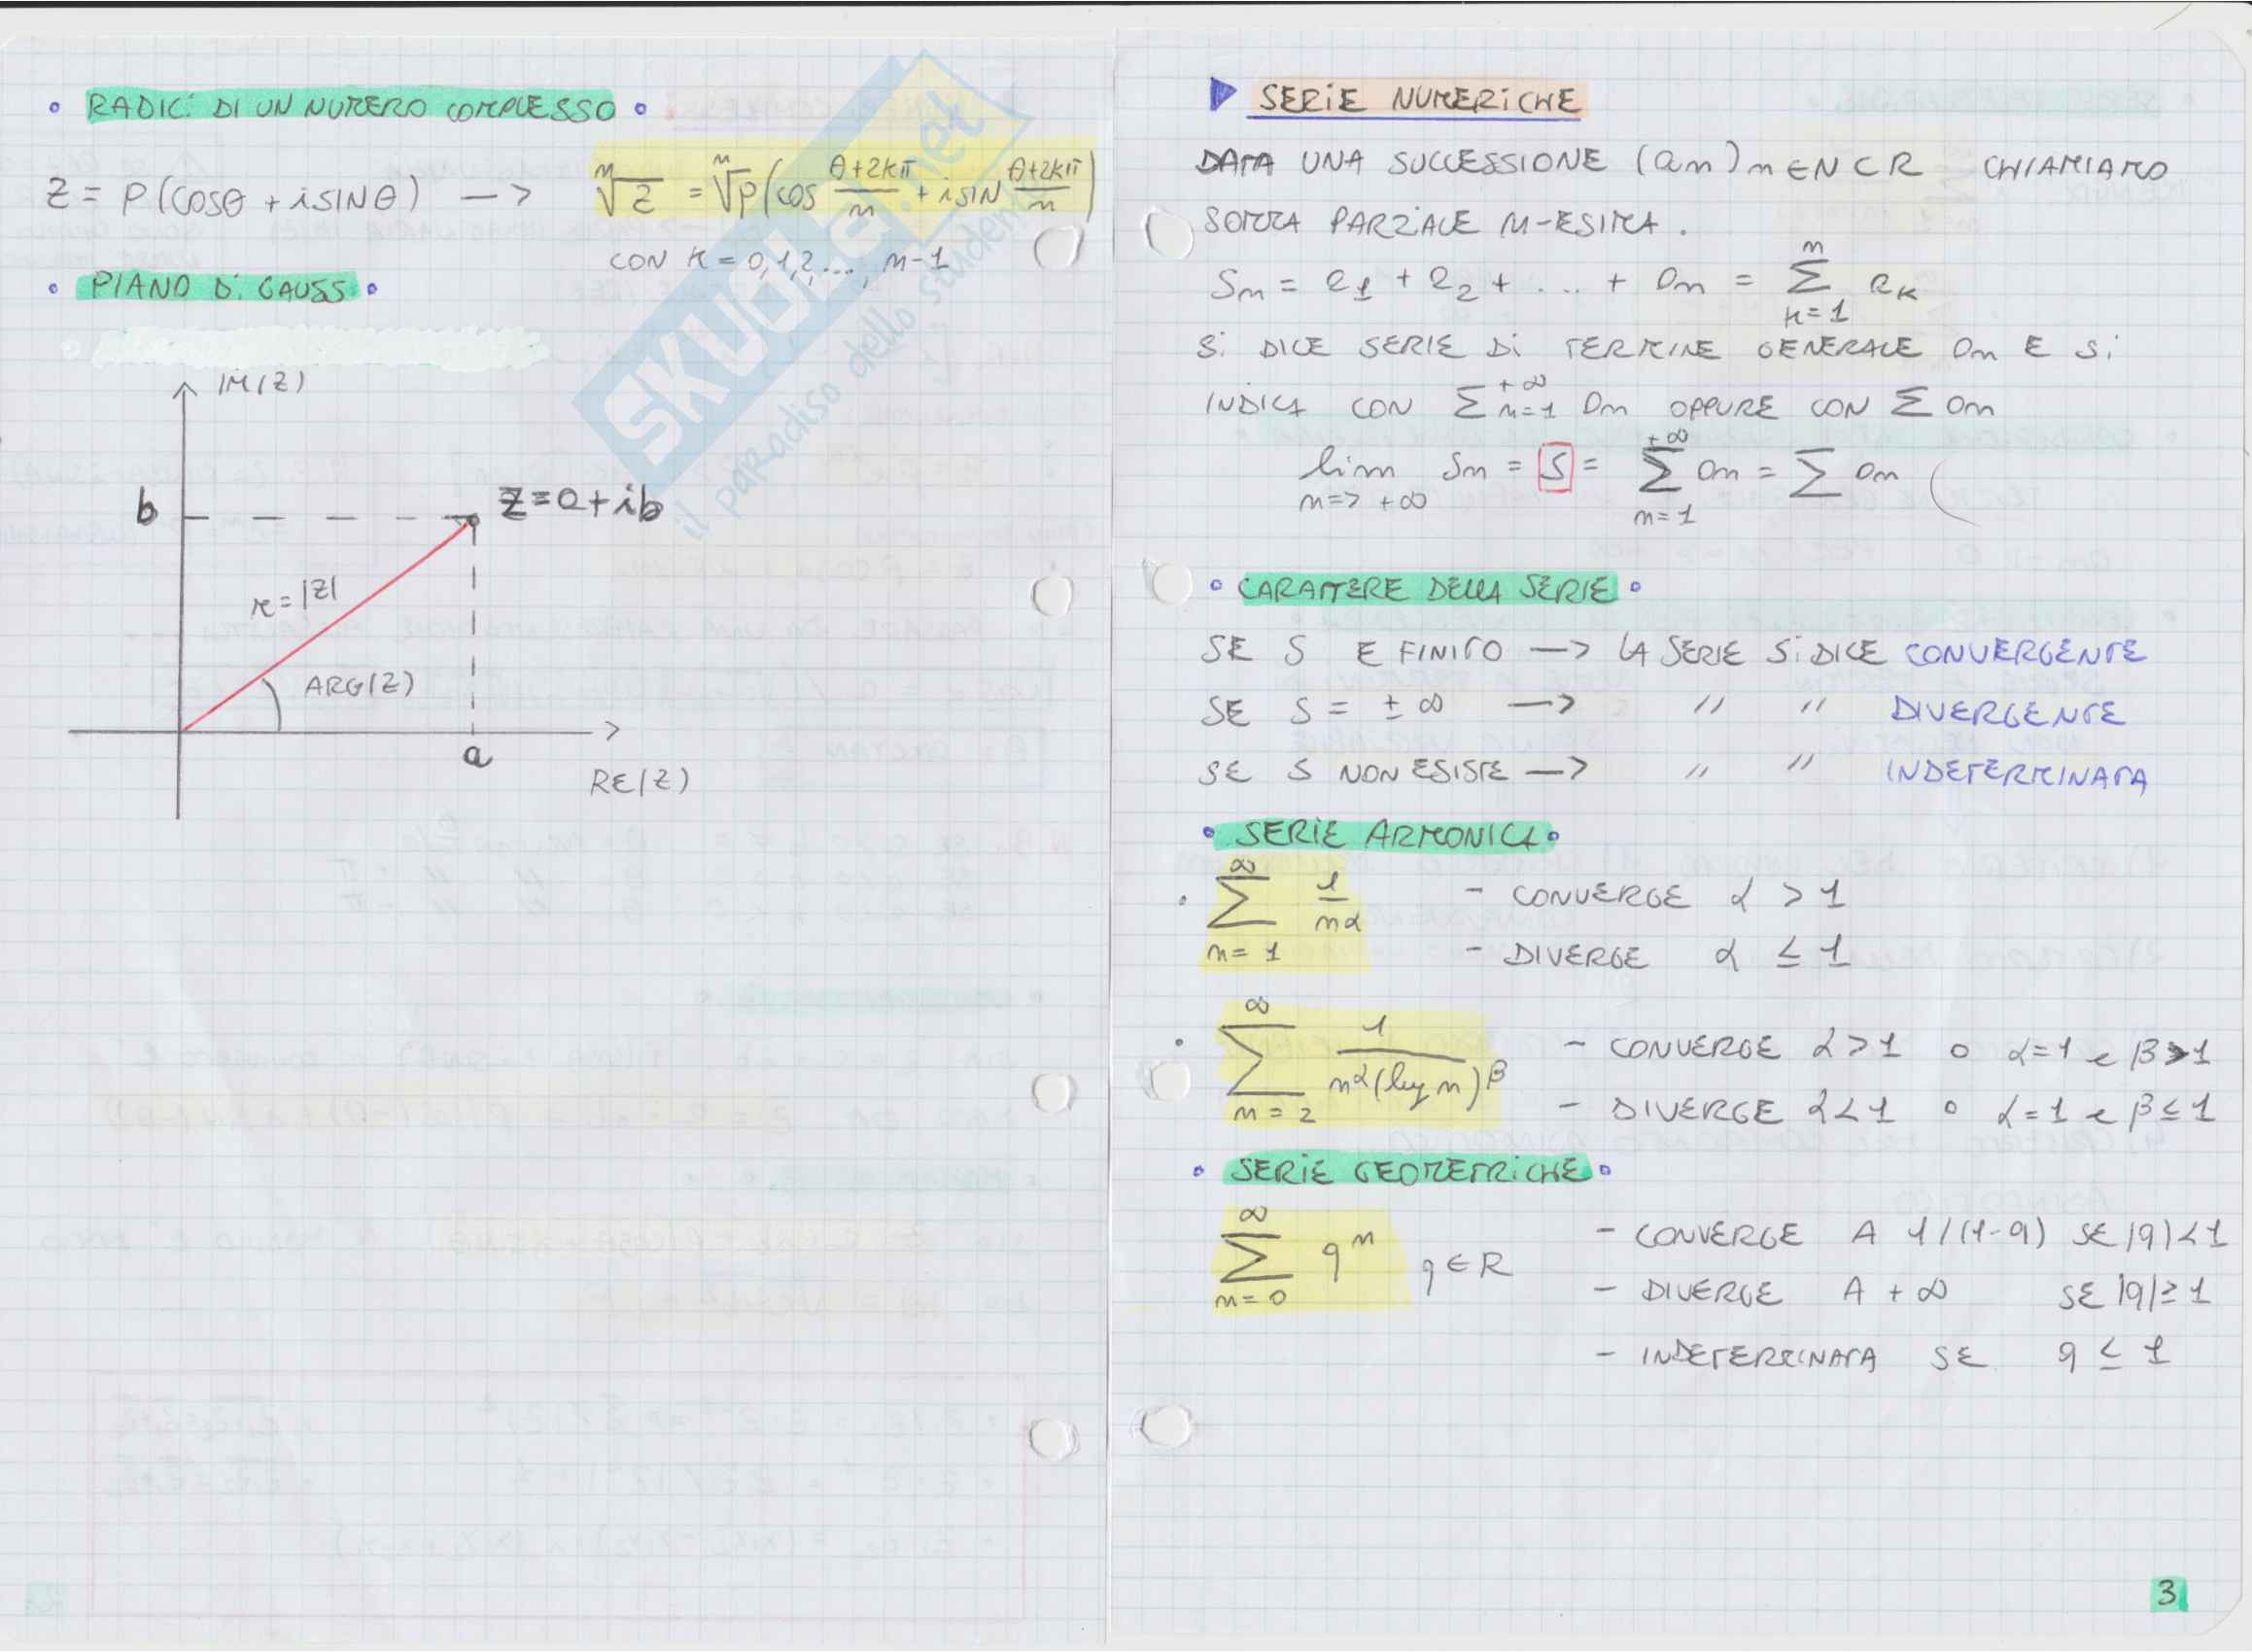 • RADICI DI UN NUMERO COMPLESSO •
Z = ρ(COSθ + iSINθ) —> ⁿ√Z = ⁿ√ρ(COS (θ+2kπ)/n + iSIN (θ+2kπ)/n)
CON K = 0,1,2,..., n-1
• PIANO DI GAUSS •
IM(Z)
b
Z=a+ib
r=|Z|
ARG(Z)
a
RE(Z)
SKUOLA.net
il paradiso dello studente
SERIE NUMERICHE
DATA UNA SUCCESSIONE (an) n∈N⊂R CHIAMIAMO
SOMMA PARZIALE N-ESIMA .
Sn = a1 + a2 + ... + an = Σ_{k=1}^{n} aK
Si DICE SERIE Di TERMINE GENERALE an E Si
INDICA CON Σ_{n=1}^{+∞} an OPPURE CON Σ an
lim_{n=> +∞} Sn = S = Σ_{n=1}^{+∞} an = Σ an (
• CARATTERE DELLA SERIE •
SE S E FINITO —> LA SERIE Si DICE CONVERGENTE
SE S = ± ∞ —> " " DIVERGENTE
SE S NON ESISTE —> " " INDETERMINATA
• SERIE ARMONICA •
• Σ_{n=1}^{∞} 1/n^α - CONVERGE α > 1
- DIVERGE α ≤ 1
• Σ_{n=2}^{∞} 1/(n^α (log n)^β) - CONVERGE α>1 o α=1 e β>1
- DIVERGE α<1 o α=1 e β≤1
• SERIE GEOMETRICHE •
Σ_{n=0}^{∞} q^n q∈R - CONVERGE A 1/(1-q) SE |q|<1
- DIVERGE A +∞ SE |q|≥1
- INDETERMINATA SE q ≤ 1
3